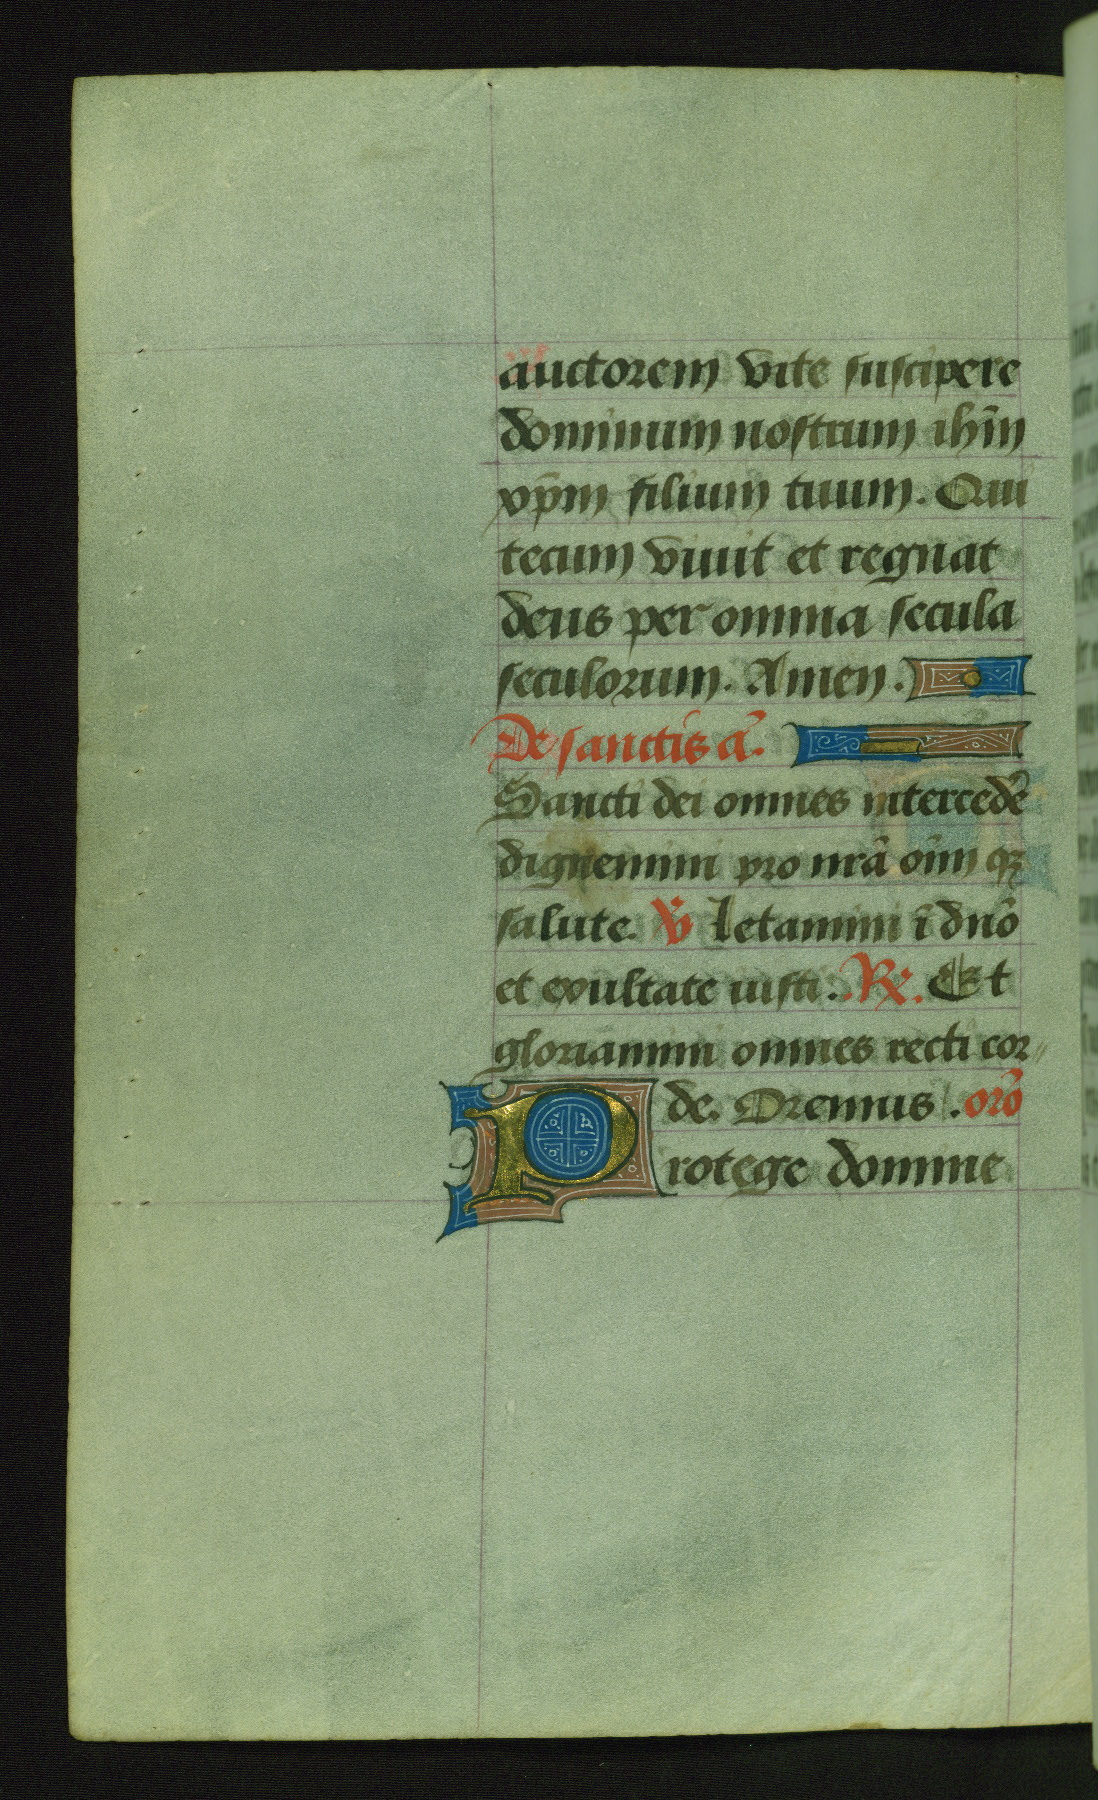 auctorem vite suscipere
dominum nostrum ihm̄
xp̄m filium tuum. Qui
tecum viuit et regnat
deus per omnia secula
seculorum. Amen.
De sanctis a᷑.
Sancti dei omnes intercedē
dignemini pro nr̄a oīm qꝫ
salute. V̇ Letamini ī dn̄o
et exultate iusti. Rx. Et
gloriamini omnes recti cor-
de. Oremus. or̄o
Protege domine